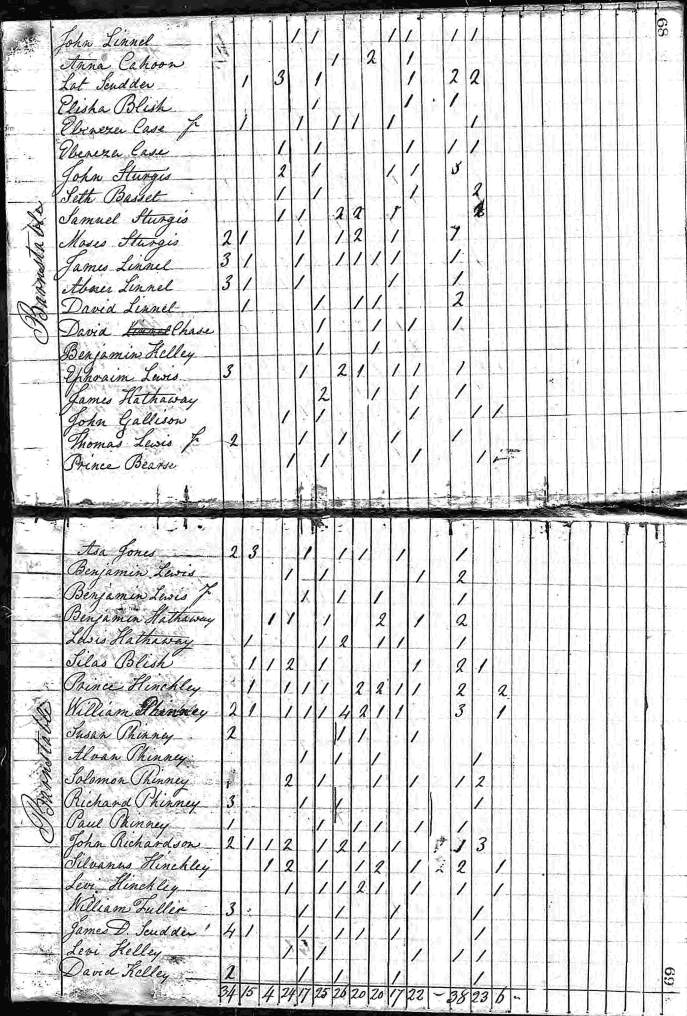 68
Barnstable
John Linnel 1 1 1 1 1 1
Anna Cahoon 1 2 1
Lot Scudder 1 3 1 1 2 2
Elisha Blish 1 1 1
Ebenezer Case Jr 1 1 1 1 1 1
Ebenezer Case 1 1 1 1 1
John Sturgis 2 1 1 1
Seth Basset 1 1 1 2
Samuel Sturgis 1 1 2 2 1
Moses Sturgis 2 1 1 1 2 1
James Linnel 3 1 1 1 1 1 1 1
Abner Linnel 3 1 1 1 1
David Linnel 1 1 1 1 2
David Chase 1 1 1 1
Benjamin Kelley 1 1
Ephraim Lewis 3 1 2 1 1 1 1
James Hathaway 2 1 1 1
John Gallison 1 1 1 1 1
Thomas Lewis Jr 2 1 1 1 1
Prince Bearse 1 1 1 1
Barnstable
Asa Jones 2 3 1 1 1 1 1
Benjamin Lewis 1 1 1 2
Benjamin Lewis Jr 1 1 1 1
Benjamin Hathaway 1 1 1 2 1 2
Lewis Hathaway 1 1 2 1 1 1
Silas Blish 1 1 2 1 1 2 1
Prince Hinckley 1 1 1 1 2 2 1 1 2 2
William Phinney 2 1 1 1 1 4 2 1 1 3 1
Susan Phinney 2 1 1 1
Alvan Phinney 1 1 1 1
Solomon Phinney 2 1 1 1 1 2
Richard Phinney 3 1 1 1
Paul Phinney 1 1 1 1 1 1
John Richardson 2 1 1 2 1 2 1 1 1 1 3
Silvanus Hinckley 1 2 1 1 2 1 2 2 1
Levi Hinckley 1 1 1 2 1 1 1 1 1
William Fuller 3 1 1 1 1
James D. Scudder 4 1 1 1 1 1 1
Levi Kelley 1 1 1 1 1
David Kelley 2 1 1 1 1
34 15 4 24 17 25 26 20 20 17 22 - 38 23 6 -
69